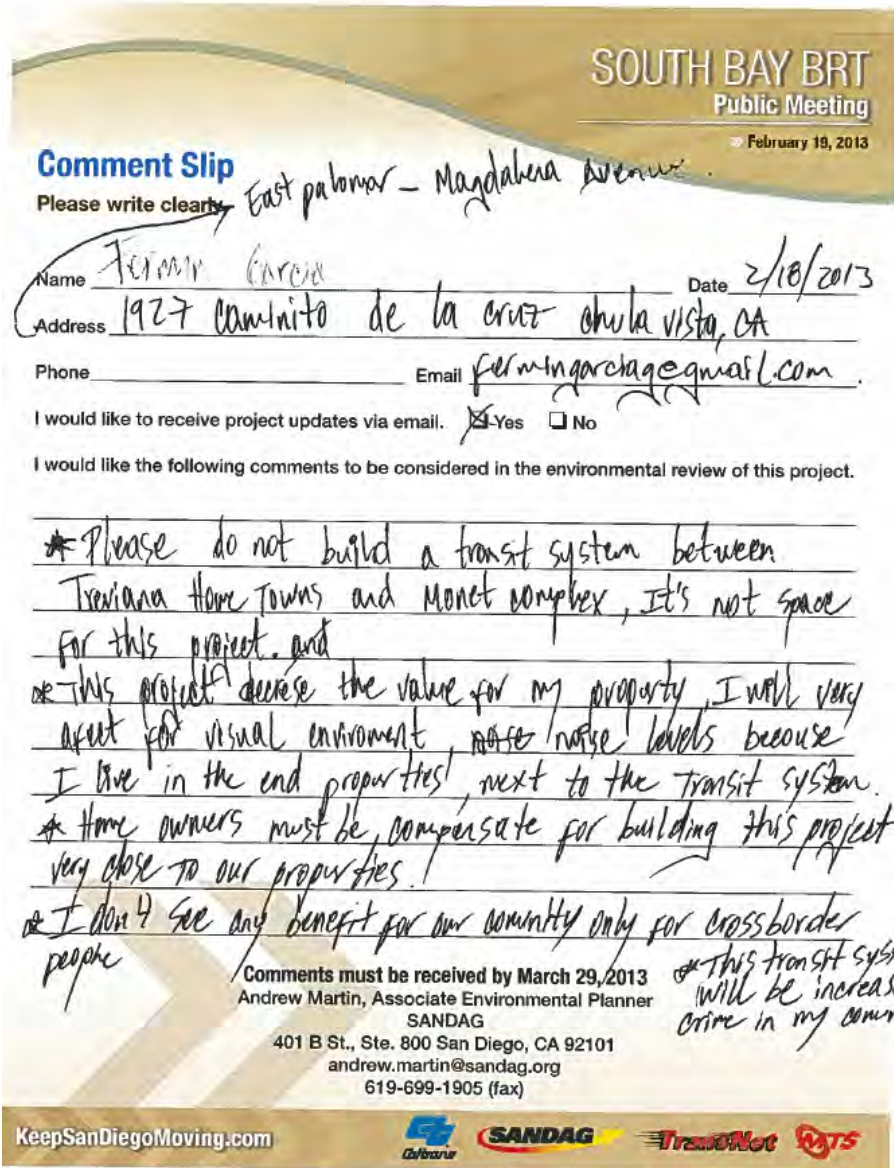 SOUTH BAY BRT
Public Meeting
» February 19, 2013
Comment Slip
East palomar - Magdalena Avenue.
Please write clearly
Name Fermin Garcia Date 2/18/2013
Address 1927 caminito de la cruz chula vista, CA
Phone Email fermingarciage@gmail.com
I would like to receive project updates via email. Yes No
I would like the following comments to be considered in the environmental review of this project.
* Please do not build a transit system between
Treviana Home Towns and Monet complex, It's not space
for this project. and
* This project decrese the value for my proparty, I will very
afect for visual enviroment, noise levels becouse
I live in the end propurties, next to the Transit system.
* Home owners must be, compensate for building this project
very close to our propurties.
* I don't see any benefit for our comunity only for crossborder
people
* This transit syst
will be increas
crime in my comm
Comments must be received by March 29, 2013
Andrew Martin, Associate Environmental Planner
SANDAG
401 B St., Ste. 800 San Diego, CA 92101
andrew.martin@sandag.org
619-699-1905 (fax)
KeepSanDiegoMoving.com Caltrans SANDAG TransNet MTS